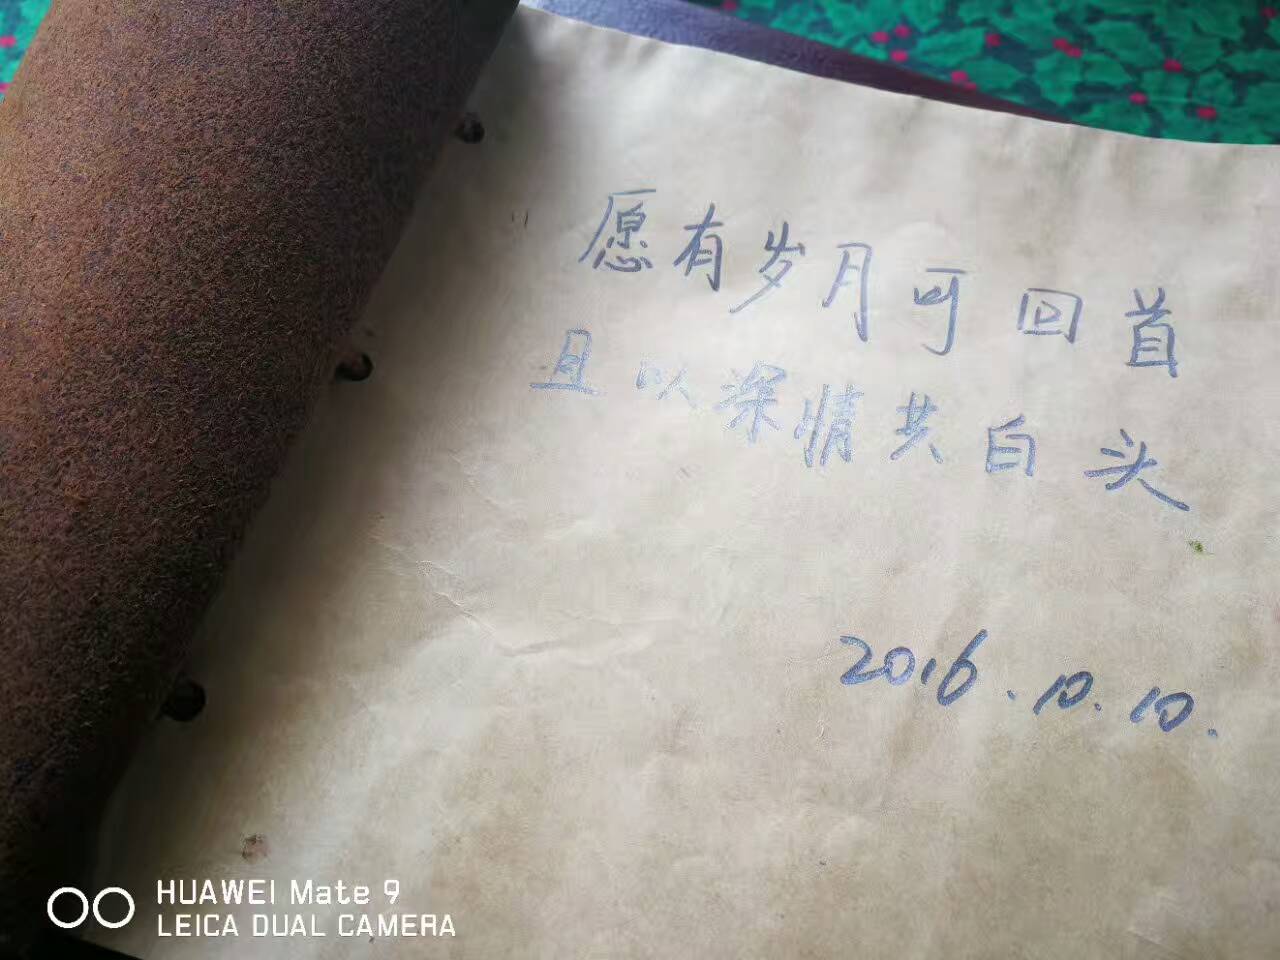 愿有岁月可回首
且以深情共白头
2016.10.10.
HUAWEI Mate 9
LEICA DUAL CAMERA